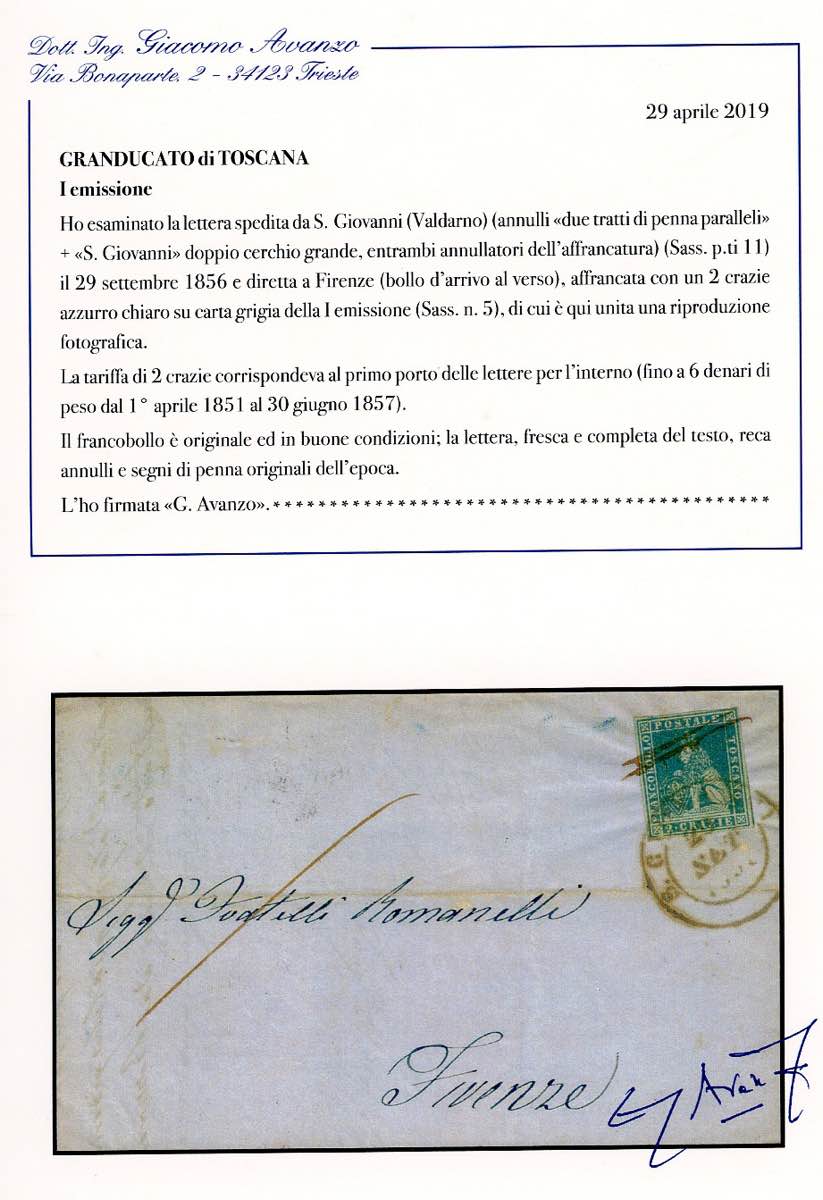 Dott. Ing. Giacomo Avanzo
Via Bonaparte, 2 - 34123 Trieste
29 aprile 2019
GRANDUCATO di TOSCANA
I emissione
Ho esaminato la lettera spedita da S. Giovanni (Valdarno) (annulli «due tratti di penna paralleli»
+ «S. Giovanni» doppio cerchio grande, entrambi annullatori dell'affrancatura) (Sass. p.ti 11)
il 29 settembre 1856 e diretta a Firenze (bollo d'arrivo al verso), affrancata con un 2 crazie
azzurro chiaro su carta grigia della I emissione (Sass. n. 5), di cui è qui unita una riproduzione
fotografica.
La tariffa di 2 crazie corrispondeva al primo porto delle lettere per l'interno (fino a 6 denari di
peso dal 1° aprile 1851 al 30 giugno 1857).
Il francobollo è originale ed in buone condizioni; la lettera, fresca e completa del testo, reca
annulli e segni di penna originali dell'epoca.
L'ho firmata «G. Avanzo». * * * * * * * * * * * * * * * * * * * * * * * * * * * * * * * * * * * * * * * * * * * *
FRANCOBOLLO
POSTALE
TOSCANO
2 CRAZIE
S. G
SET
Sigg.ri Fratelli Romanelli
Firenze